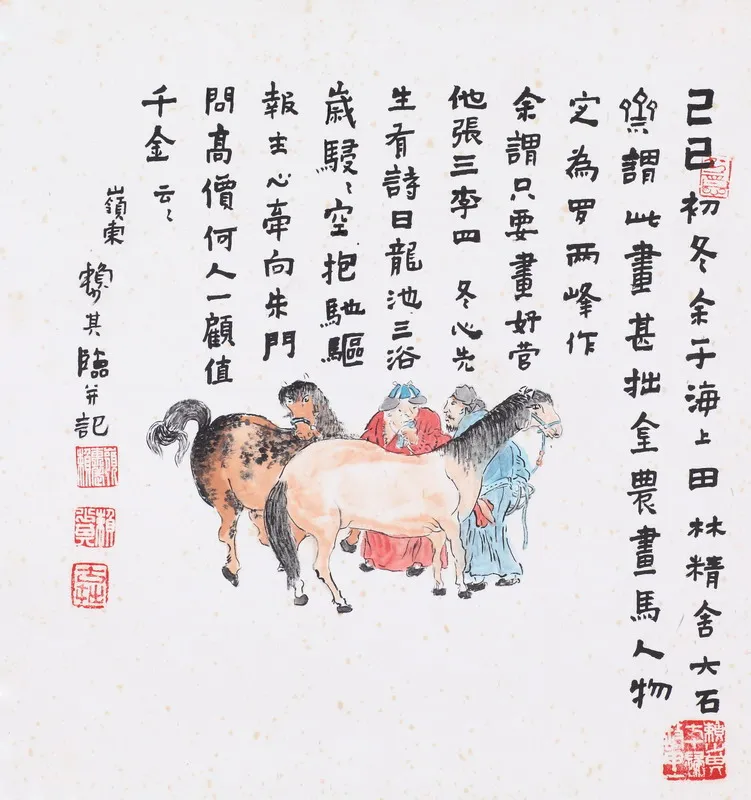 己巳初冬余于海上田林精舍六石
齋謂此畫甚拙金農畫馬人物
定為罗两峰作
余謂只要畫好管
他張三李四 冬心先
生有詩曰龍池三浴
歲駸〻空抱馳驅
報主心牽向朱門
問高價何人一顧值
千金 云〻
嶺東
賴少其臨并記